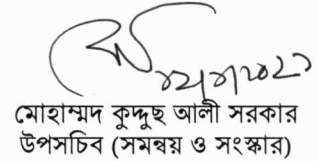 মোহাম্মদ কুদ্দুছ আলী সরকার
উপসচিব (সমন্বয় ও সংস্কার)